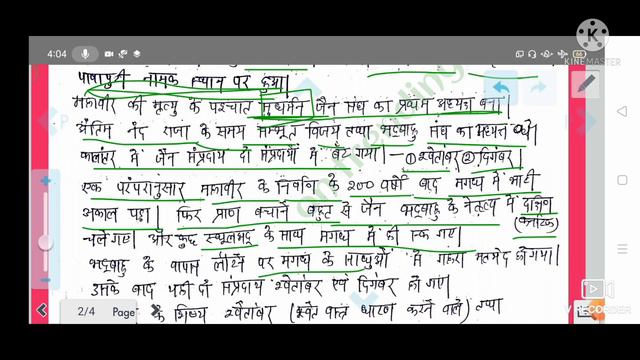 4:04
KINEMASTER
पावापुरी नामक स्थान पर हुआ।
महावीर की मृत्यु के पश्चात सुधर्मन जैन संघ का प्रथम अध्यक्ष बना।
अंतिम नंद राजा के समय सम्भूत विजय तथा भद्रबाहु संघ का अध्यक्ष थे।
कालांतर में जैन सम्प्रदाय दो संप्रदायों में बँट गया। — ① श्वेतांबर ② दिगंबर।
एक परंपरानुसार महावीर के निर्वाण के 200 वर्षों बाद मगध में भारी
अकाल पड़ा। फिर प्राण बचाने बहुत से जैन भद्रबाहु के नेतृत्व में दक्षिण
(कर्नाटक)
चले गए। और कुछ स्थूलभद्र के साथ मगध में ही रूक गए।
भद्रबाहु के वापस लौटने पर मगध के साधुओं से गहरा मतभेद हो गया।
उसके बाद यही दो सम्प्रदाय श्वेतांबर एवं दिगंबर हो गए।
के शिष्य श्वेतांबर (श्वेत वस्त्र धारण करने वाले) तथा
2/4 Page
RECORDER